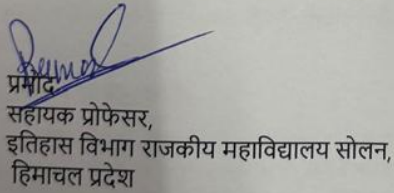 प्रमोद
सहायक प्रोफेसर,
इतिहास विभाग राजकीय महाविद्यालय सोलन,
हिमाचल प्रदेश